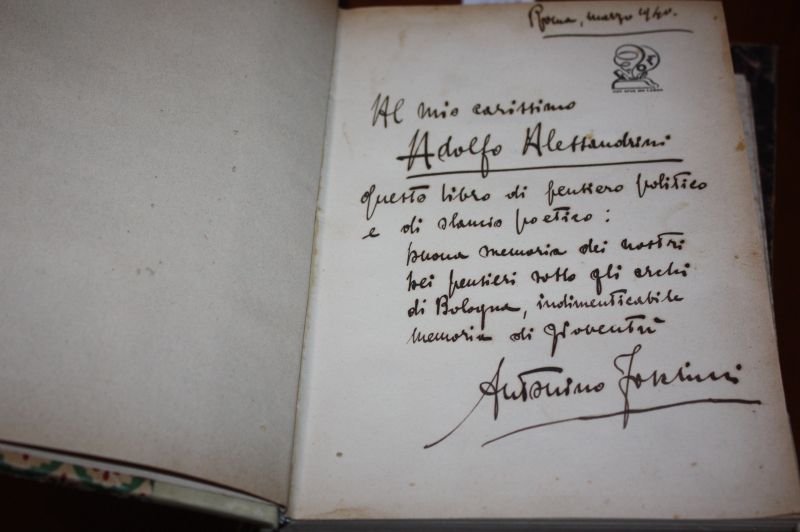 Roma, marzo 1940.
Al mio carissimo
Adolfo Alessandrini
questo libro di pensiero politico
e di slancio poetico:
buona memoria dei nostri
bei pensieri sotto gli archi
di Bologna, indimenticabile
memoria di gioventù
Antonino